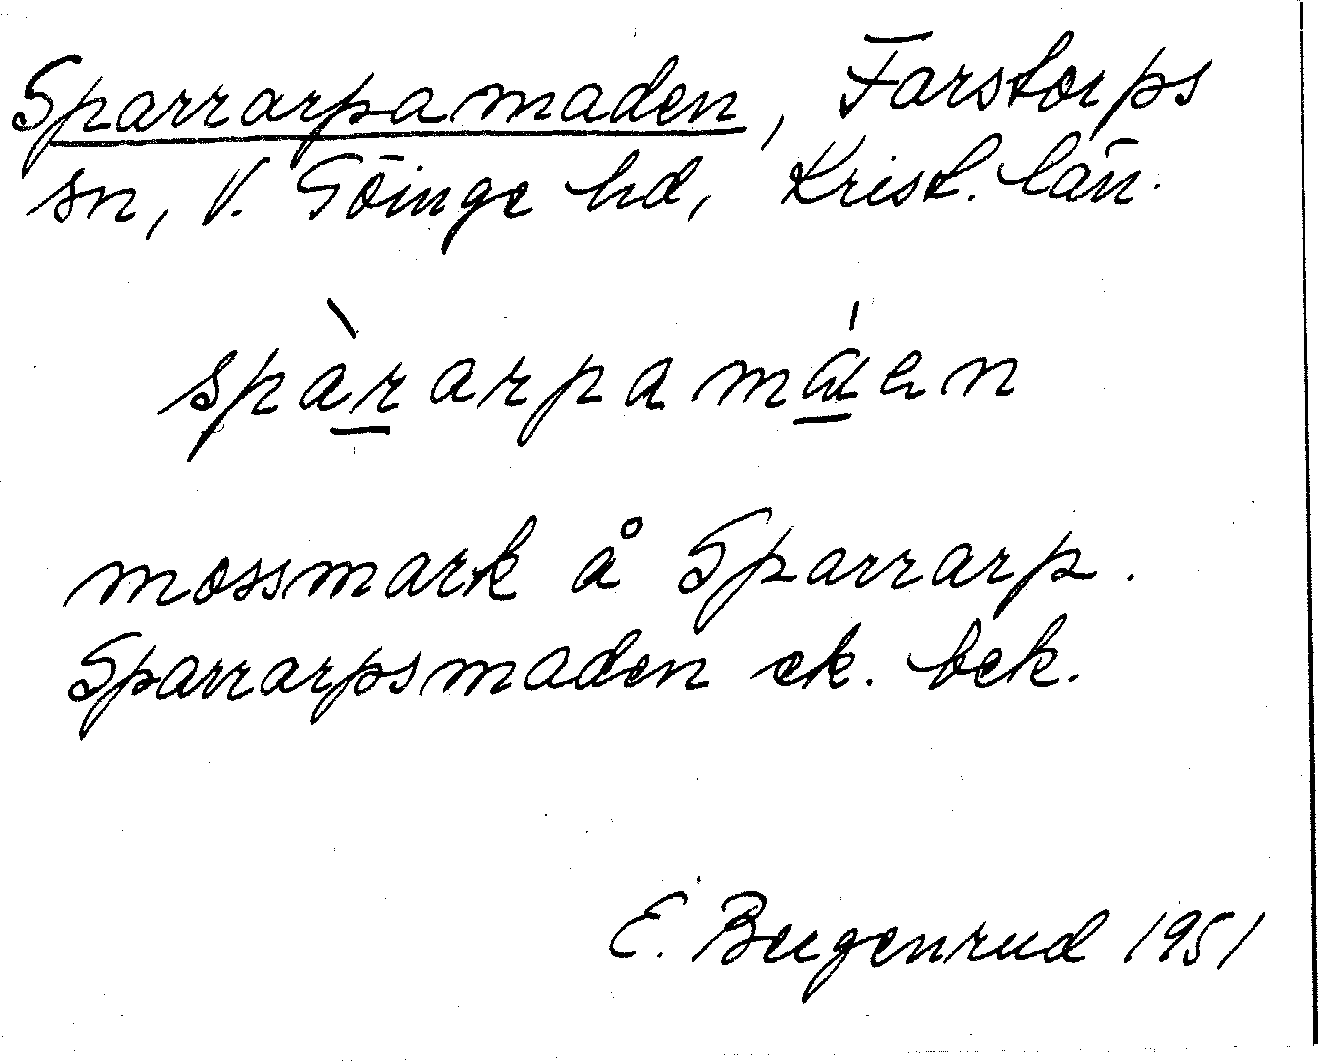 Sparrarpamaden, Farstorps
sn, V. Göinge hd, Krist. län.
spàrarpamáen
mossmark å Sparrarp.
Sparrarpsmaden ek. bek.
E. Bergenrud 1951